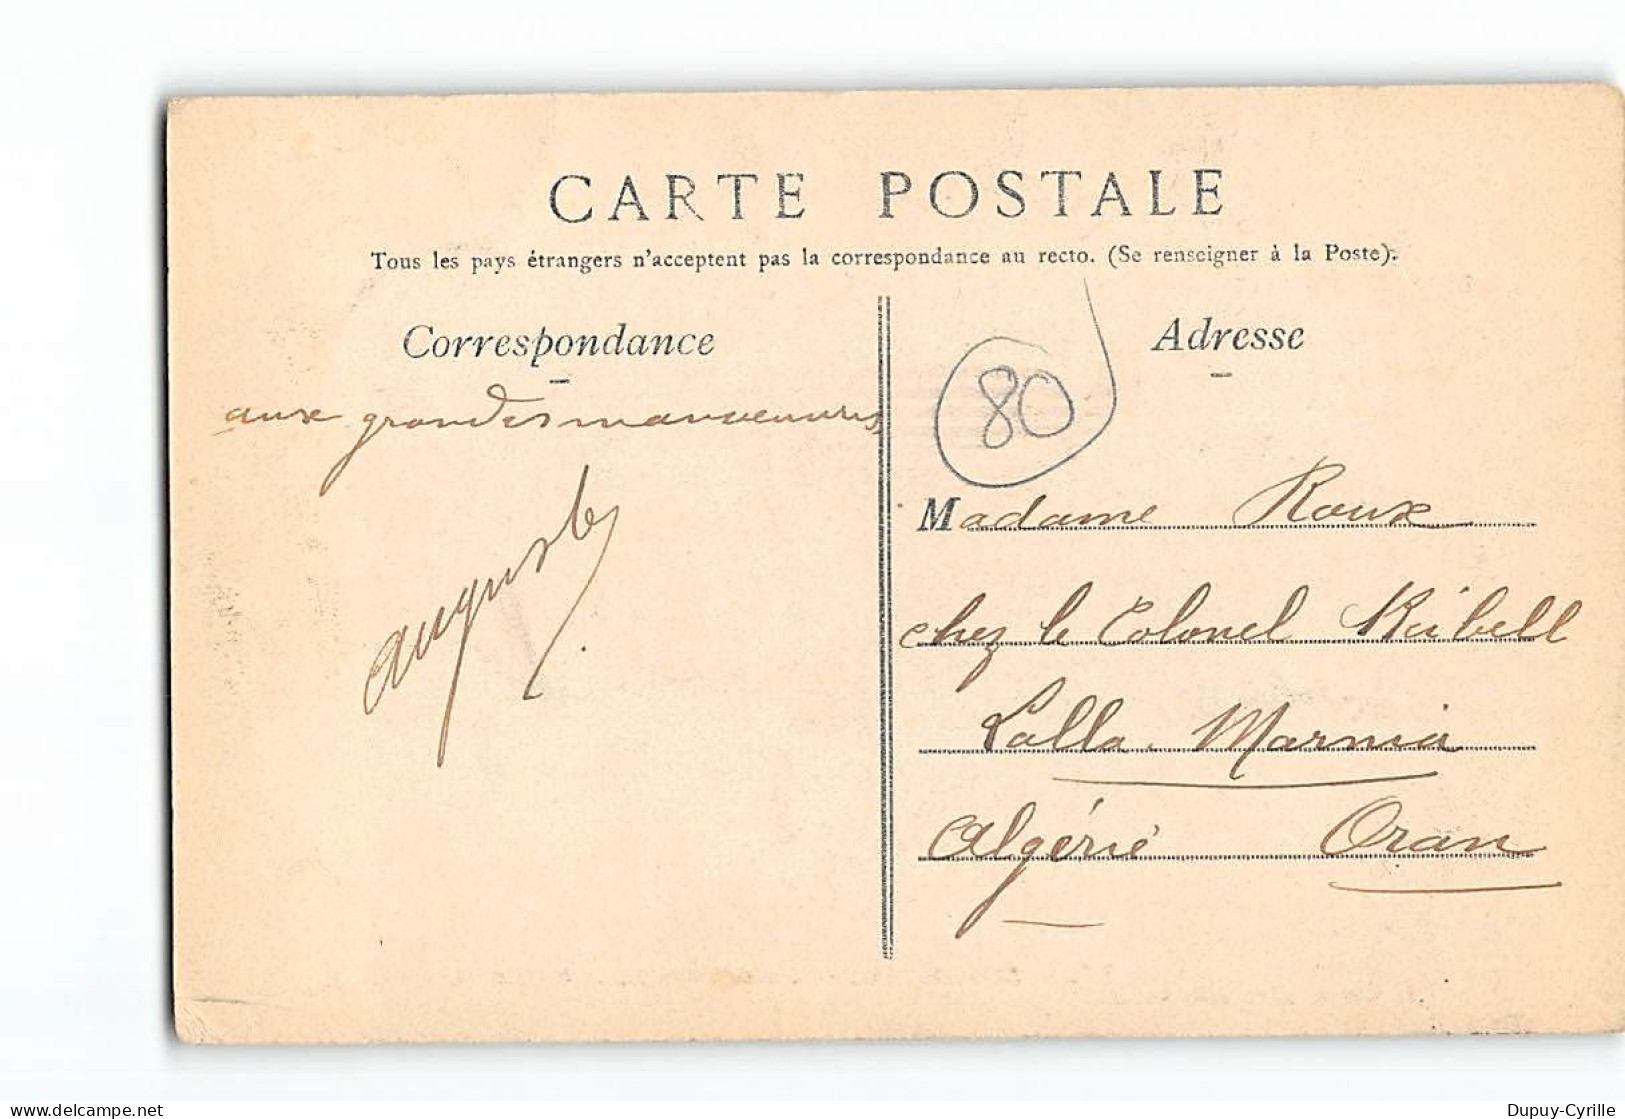 CARTE POSTALE
Tous les pays étrangers n'acceptent pas la correspondance au recto. (Se renseigner à la Poste).
Correspondance
aux grandes manoeuvres
auguste
Adresse
80
Madame Roux
chez le Colonel
Lalla. Marnia
Algérie Oran
Dupuy-Cyrille